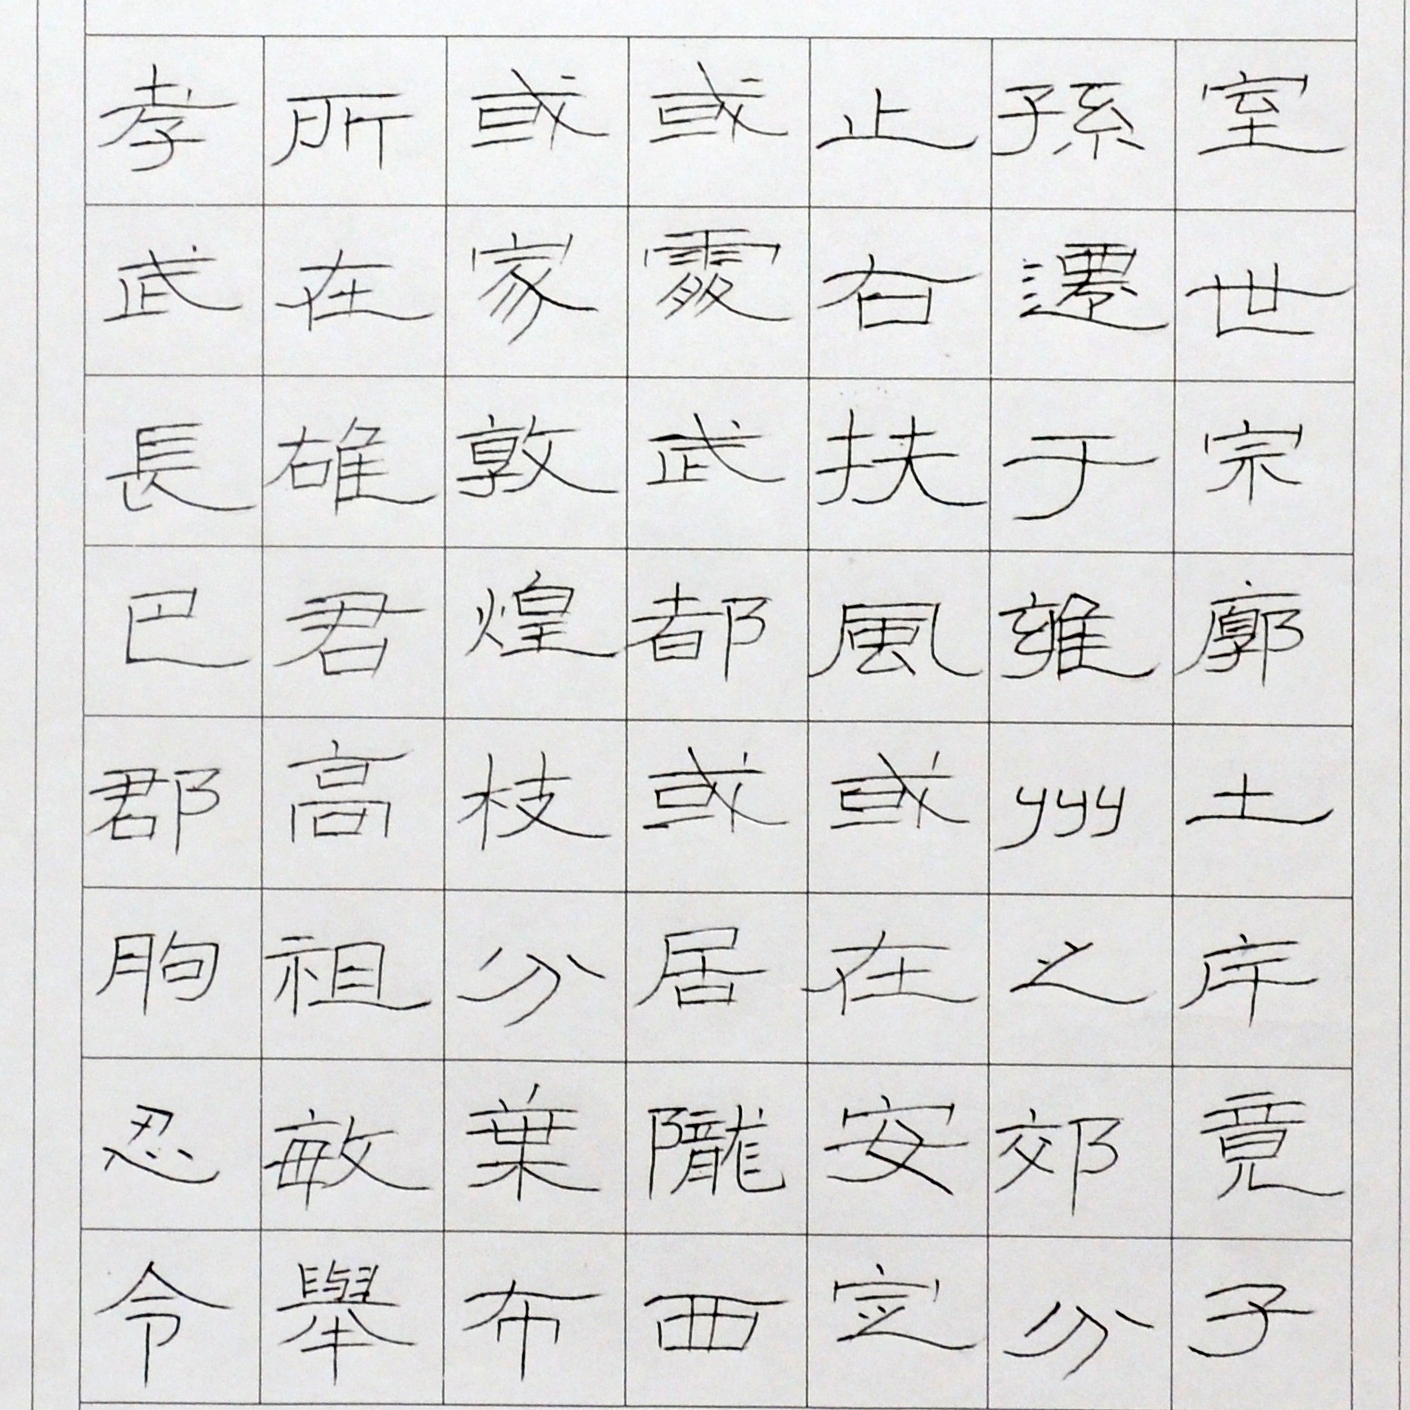 室世宗廓土斥竟子
孫遷于雍州之郊分
止右扶風或在安定
或處武都或居隴西
或家敦煌枝分葉布
所在雄君高祖敏舉
孝武長巴郡朐忍令